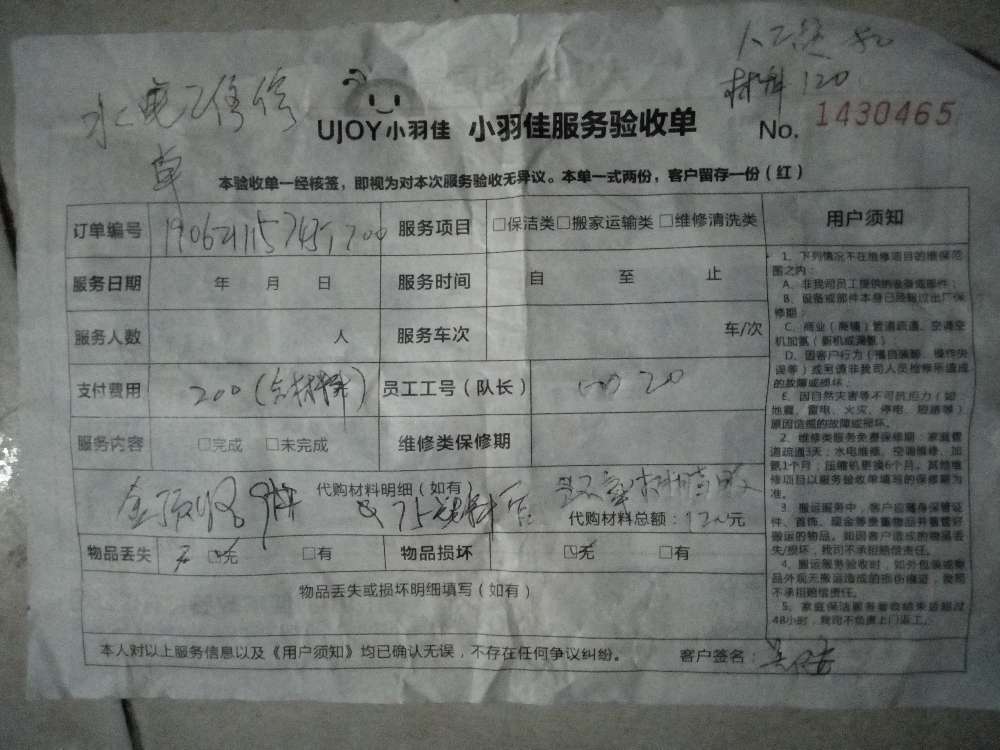 人工费 80
材料 120
水电工维修
单
UJOY小羽佳 小羽佳服务验收单 No. 1430465
本验收单一经核签，即视为对本次服务验收无异议。本单一式两份，客户留存一份（红）
订单编号 服务项目 □保洁类□搬家运输类 □维修清洗类
服务日期 年 月 日 服务时间 自 至 止
服务人数 人 服务车次 车/次
支付费用 200（含材料） 员工工号（队长） 20
服务内容 □完成 □未完成 维修类保修期
代购材料明细（如有）
代购材料总额：120元
物品丢失 无 ☑无 □有 物品损坏 ☑无 □有
物品丢失或损坏明细填写（如有）
本人对以上服务信息以及《用户须知》均已确认无误，不存在任何争议纠纷。 客户签名：
用户须知
1、下列情况不在维修项目的维保范
围之内：
A、非我司员工提供的设备或部件；
B、设备或部件本身已经超过出厂保
修期；
C、商业（商铺）管道疏通、空调空
机加氟（新机或漏氟）
D、因客户行为（擅自碰触、操作失
误等）或另请非我司人员检修所造成
的故障或损坏；
E、因自然灾害等不可抗拒力（如：
地震、雷电、火灾、停电、短路等）
原因造成的故障或损坏。
2、维修类服务免费保修期：家庭管
道疏通3天；水电维修、空调维修、加
氟1个月；压缩机更换6个月。其他维
修项目以服务验收单填写的保修期为
准。
3、搬运服务中，客户应随身保管证
件、首饰、现金等贵重物品并看管好
搬运的物品。如因客户造成的物品丢
失/损坏，我司不承担赔偿责任。
4、搬运服务验收时，如外包装或物
品外观无搬运造成的损伤痕迹，我司
不承担赔偿责任。
5、家庭保洁服务验收结束后超过
48小时，我司不负责上门返工。